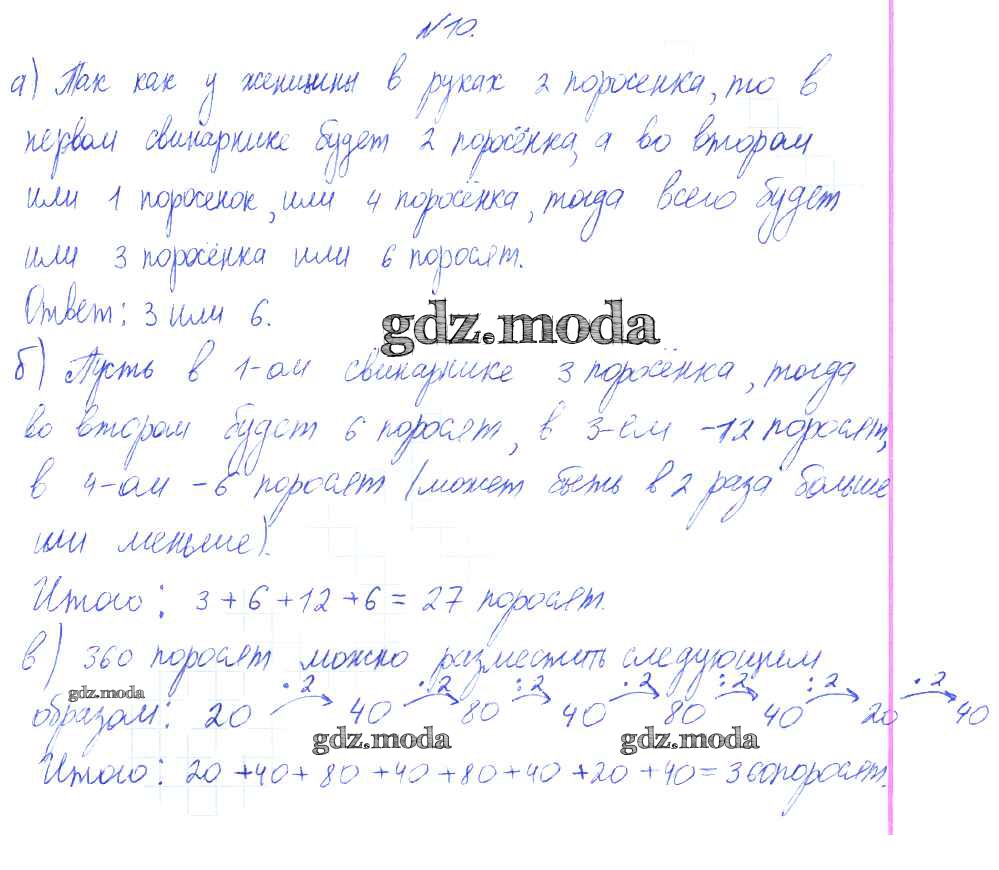 №10.
а) Так как у женщины в руках 2 поросенка, то в
первом свинарнике будет 2 поросёнка, а во втором
или 1 поросенок, или 4 поросёнка, тогда всего будет
или 3 поросёнка или 6 поросят.
Ответ: 3 или 6.
gdz.moda
б) Пусть в 1-ом свинарнике 3 поросёнка, тогда
во втором будет 6 поросят, в 3-ем -12 поросят,
в 4-ом -6 поросят (может быть в 2 раза больше
или меньше).
Итого: 3+6+12+6=27 поросят.
в) 360 поросят можно разместить следующим
gdz.moda
·2 ·2 :2 ·2 :2 :2 ·2
образом: 20 40 80 40 80 40 20 40
gdz.moda gdz.moda
Итого: 20+40+80+40+80+40+20+40=360поросят.